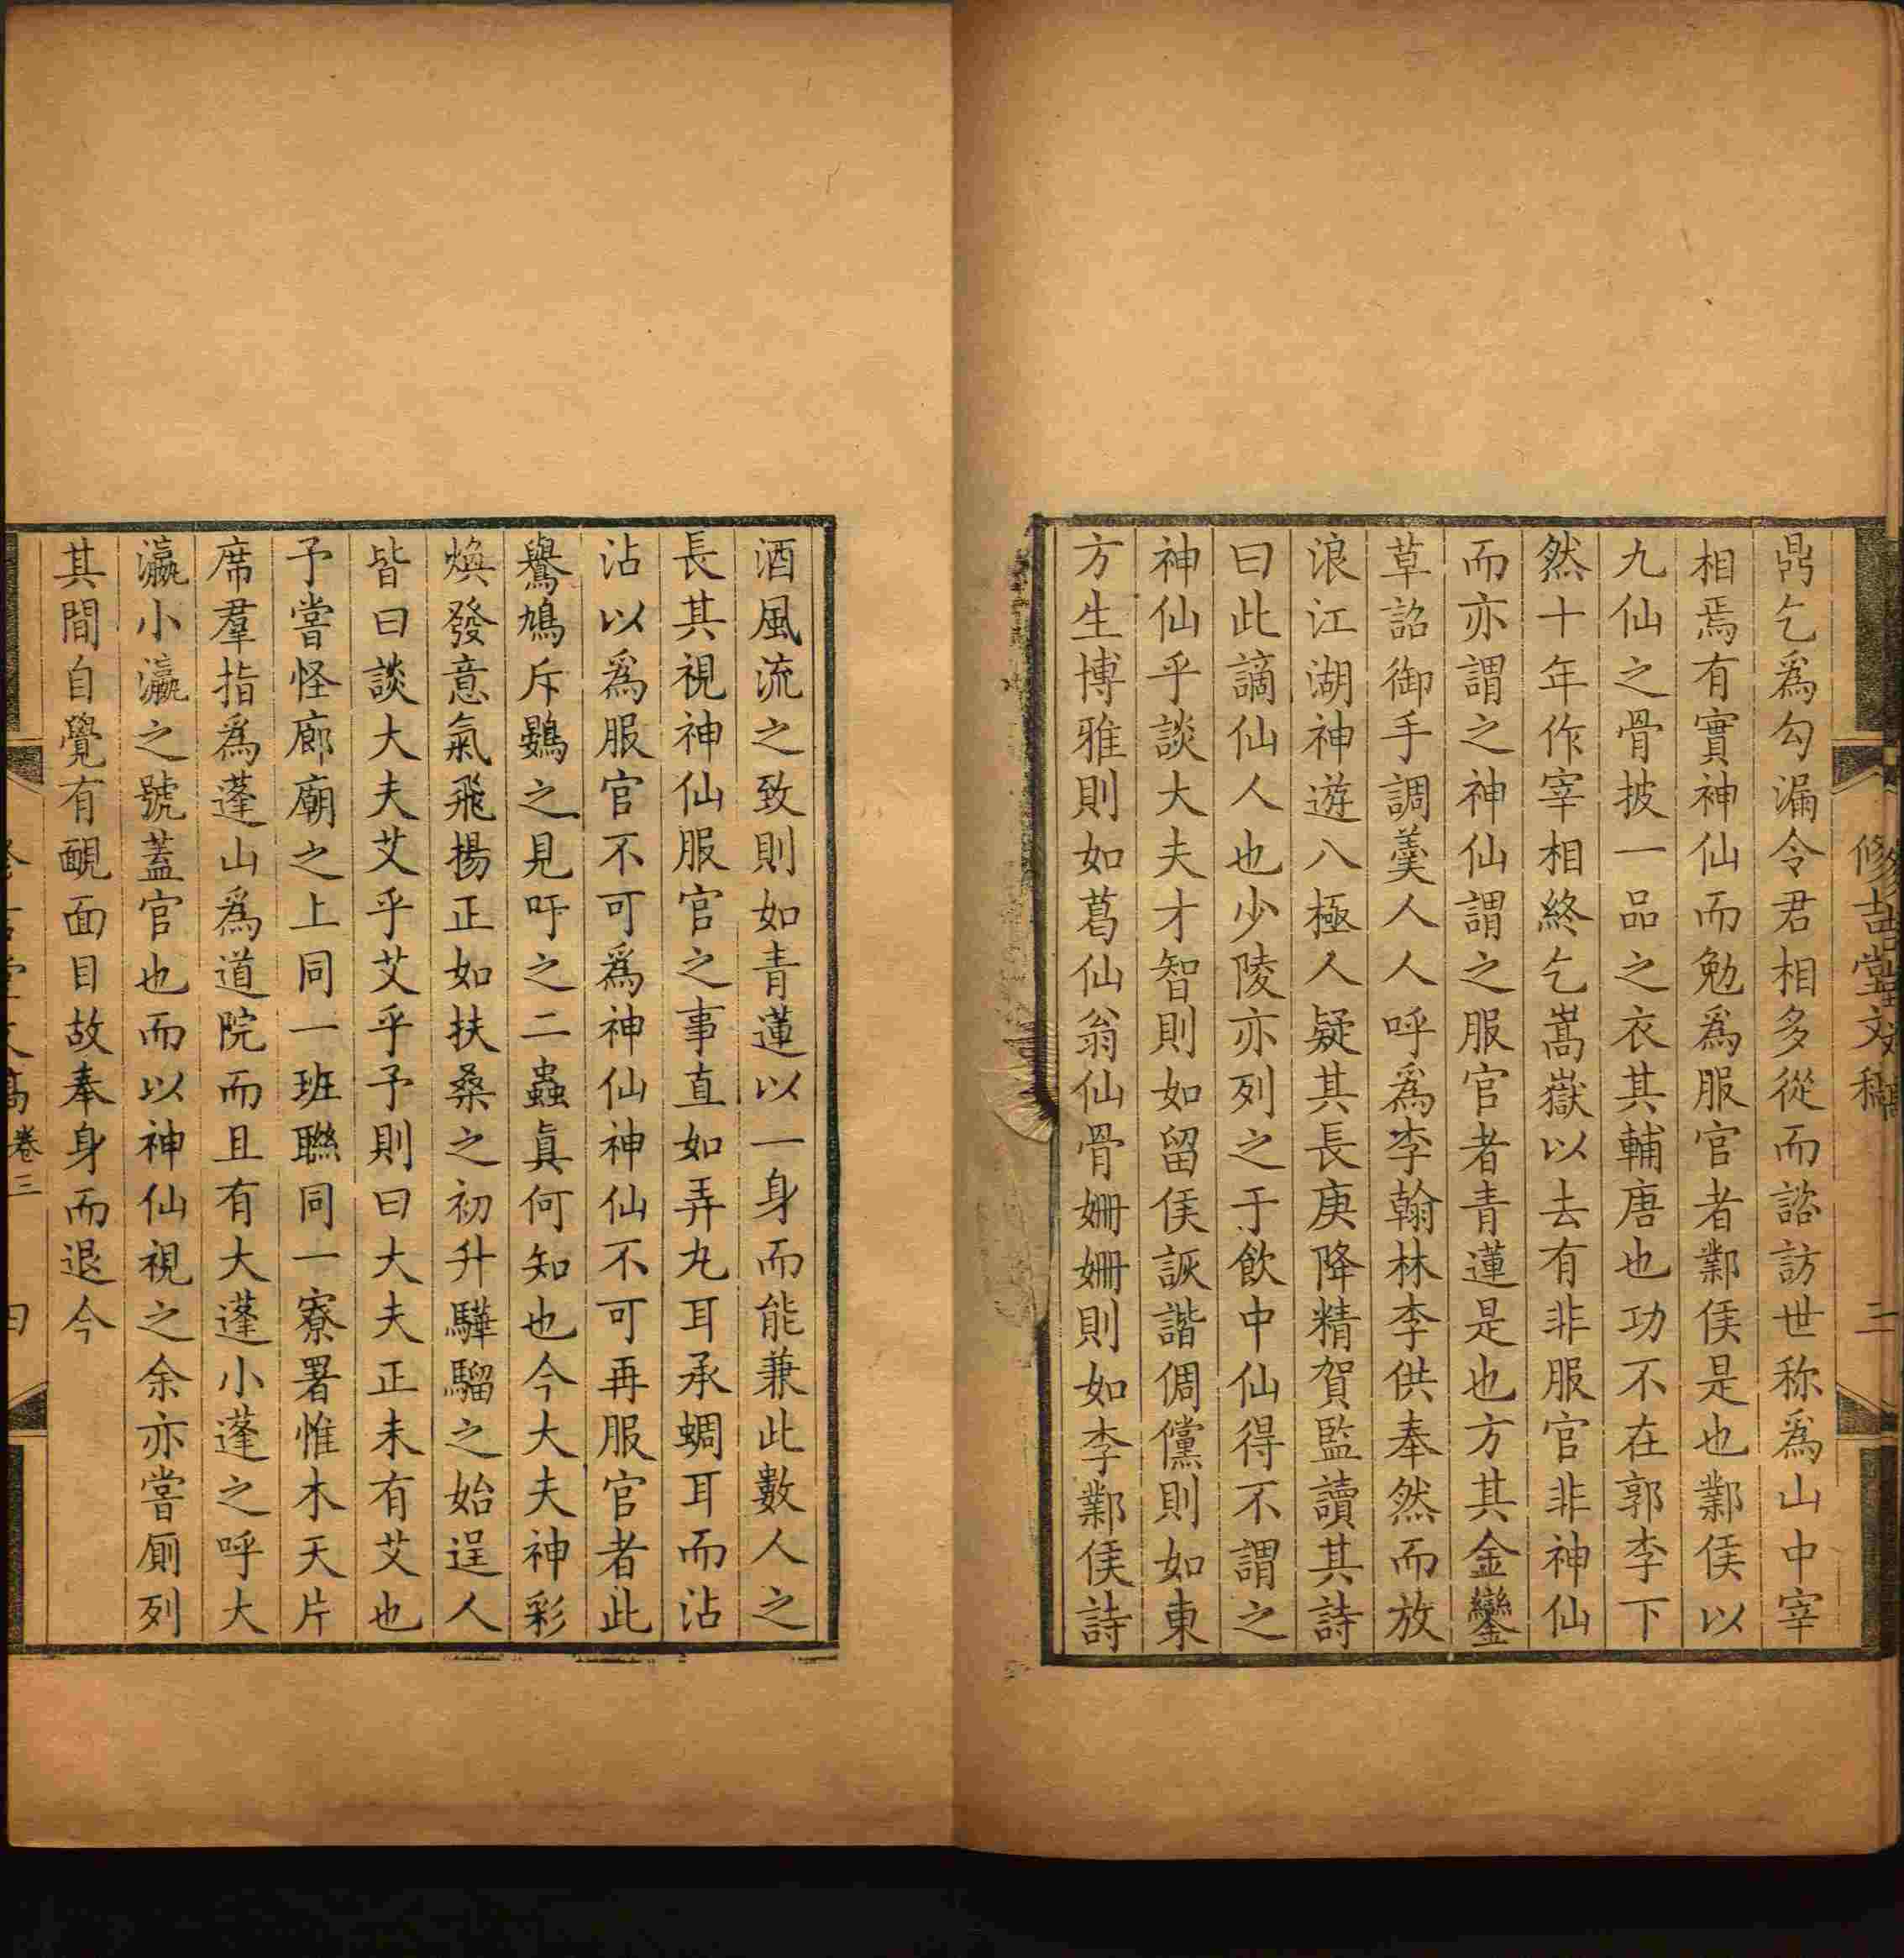 修古堂文稿 三
鼎乞爲勾漏令君相多從而諮訪世称爲山中宰
相焉有實神仙而勉爲服官者鄴侯是也鄴侯以
九仙之骨披一品之衣其輔唐也功不在郭李下
然十年作宰相終乞嵩嶽以去有非服官非神仙
而亦謂之神仙謂之服官者青蓮是也方其金鑾
草詔御手調羹人人呼爲李翰林李供奉然而放
浪江湖神遊八極人疑其長庚降精賀監讀其詩
曰此謫仙人也少陵亦列之于飲中仙得不謂之
神仙乎談大夫才智則如留侯詼諧倜儻則如東
方生博雅則如葛仙翁仙骨姍姍則如李鄴侯詩
酒風流之致則如青蓮以一身而能兼此數人之
長其視神仙服官之事直如弄丸耳承蜩耳而沾
沾以爲服官不可爲神仙神仙不可再服官者此
鷽鳩斥鷃之見吁之二蟲眞何知也今大夫神彩
煥發意氣飛揚正如扶桑之初升驊騮之始逞人
皆曰談大夫艾乎艾乎予則曰大夫正未有艾也
予嘗怪廊廟之上同一班聯同一寮署惟木天片
席羣指爲蓬山爲道院而且有大蓬小蓬之呼大
瀛小瀛之號蓋官也而以神仙視之余亦嘗廁列
其間自覺有靦面目故奉身而退今
卷三